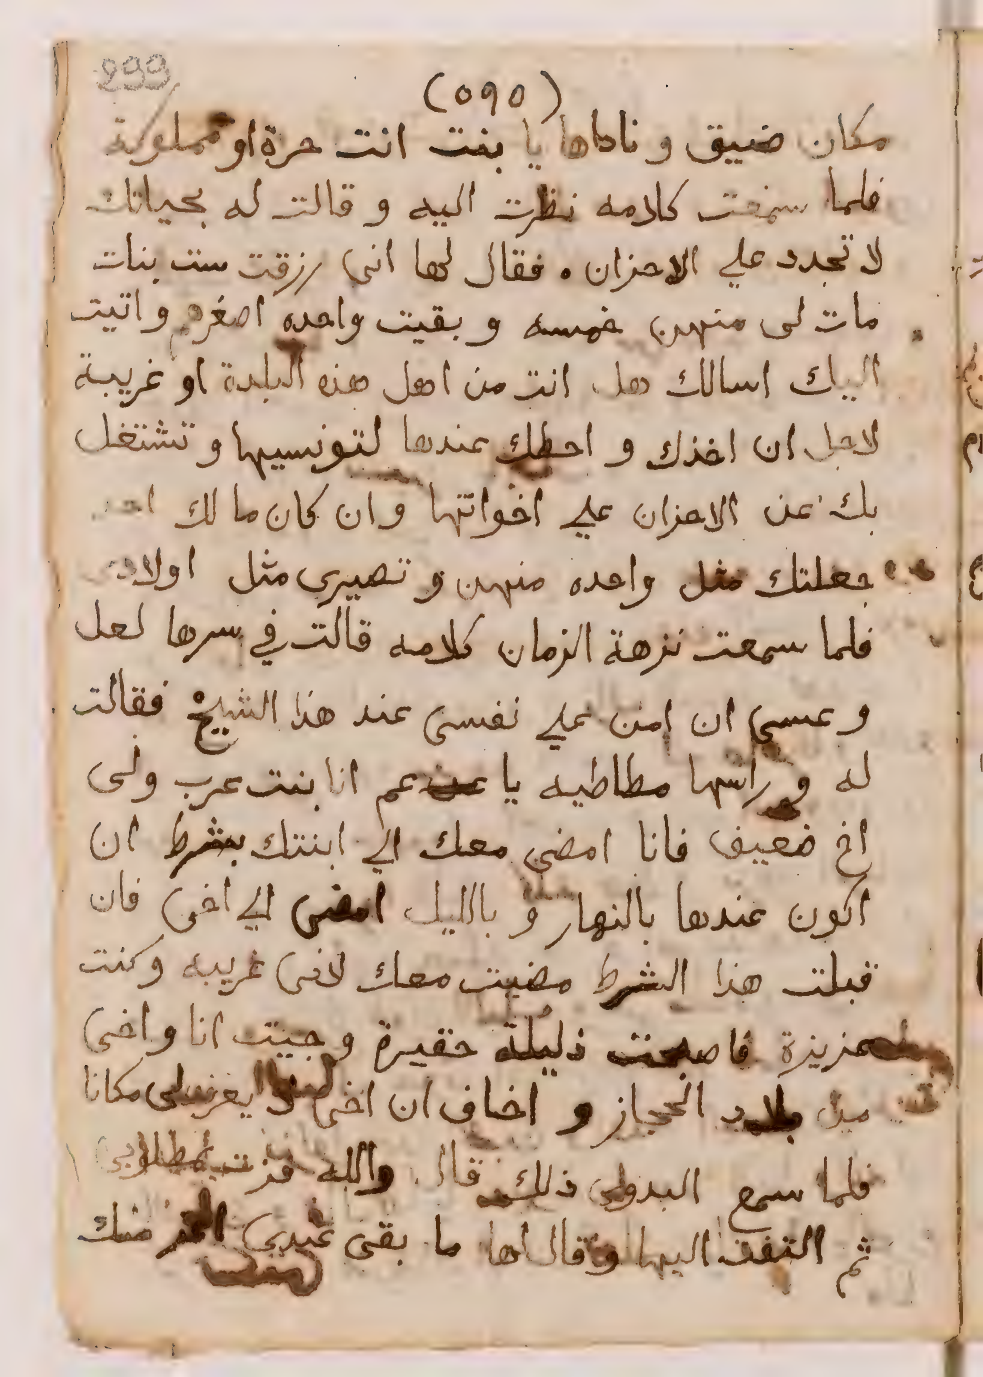 299
(٥٩٥)
مكان ضيق و ناداها يا بنت انت حرة او مملوكة
فلما سمعت كلامه نظرت اليه و قالت له بحياتك
لا تجدد علي الاحزان . فقال لها اني رزقت ست بنات
مات لى منهن خمسه و بقيت واحده اصغرهم و اتيت
اليك اسالك هل انت من اهل هذه البلدة او غريبة
لاجل ان اخذك و احطك عندها لتونسيها و تشتغل
بك عن الاحزان علي اخواتها وان كان ما لك احد
جعلتك مثل واحده منهن و تصيرى مثل اولادى
فلما سمعت نزهة الزمان كلامه قالت في سرها لعل
و عسى ان امن علي نفسى عند هذا الشيخ فقالت
له و راسها مطاطيه يا عم انا بنت عرب ولى
اخ ضعيف فانا امضى معك الي ابنتك بشرط ان
اكون عندها بالنهار و بالليل امضى الي اخى فان
قبلت هذا الشرط مضيت معك لانى غريبه وكنت
عزيزة فاصبحت ذليلة حقيرة وجيت انا و اخى
من بلاد الحجاز و اخاف ان اخى لا يعرف لى مكانا
فلما سمع البدوى ذلك قال والله فزت بمطلوبى
ثم التفت اليها وقال لها ما بقى عندى اعز منك